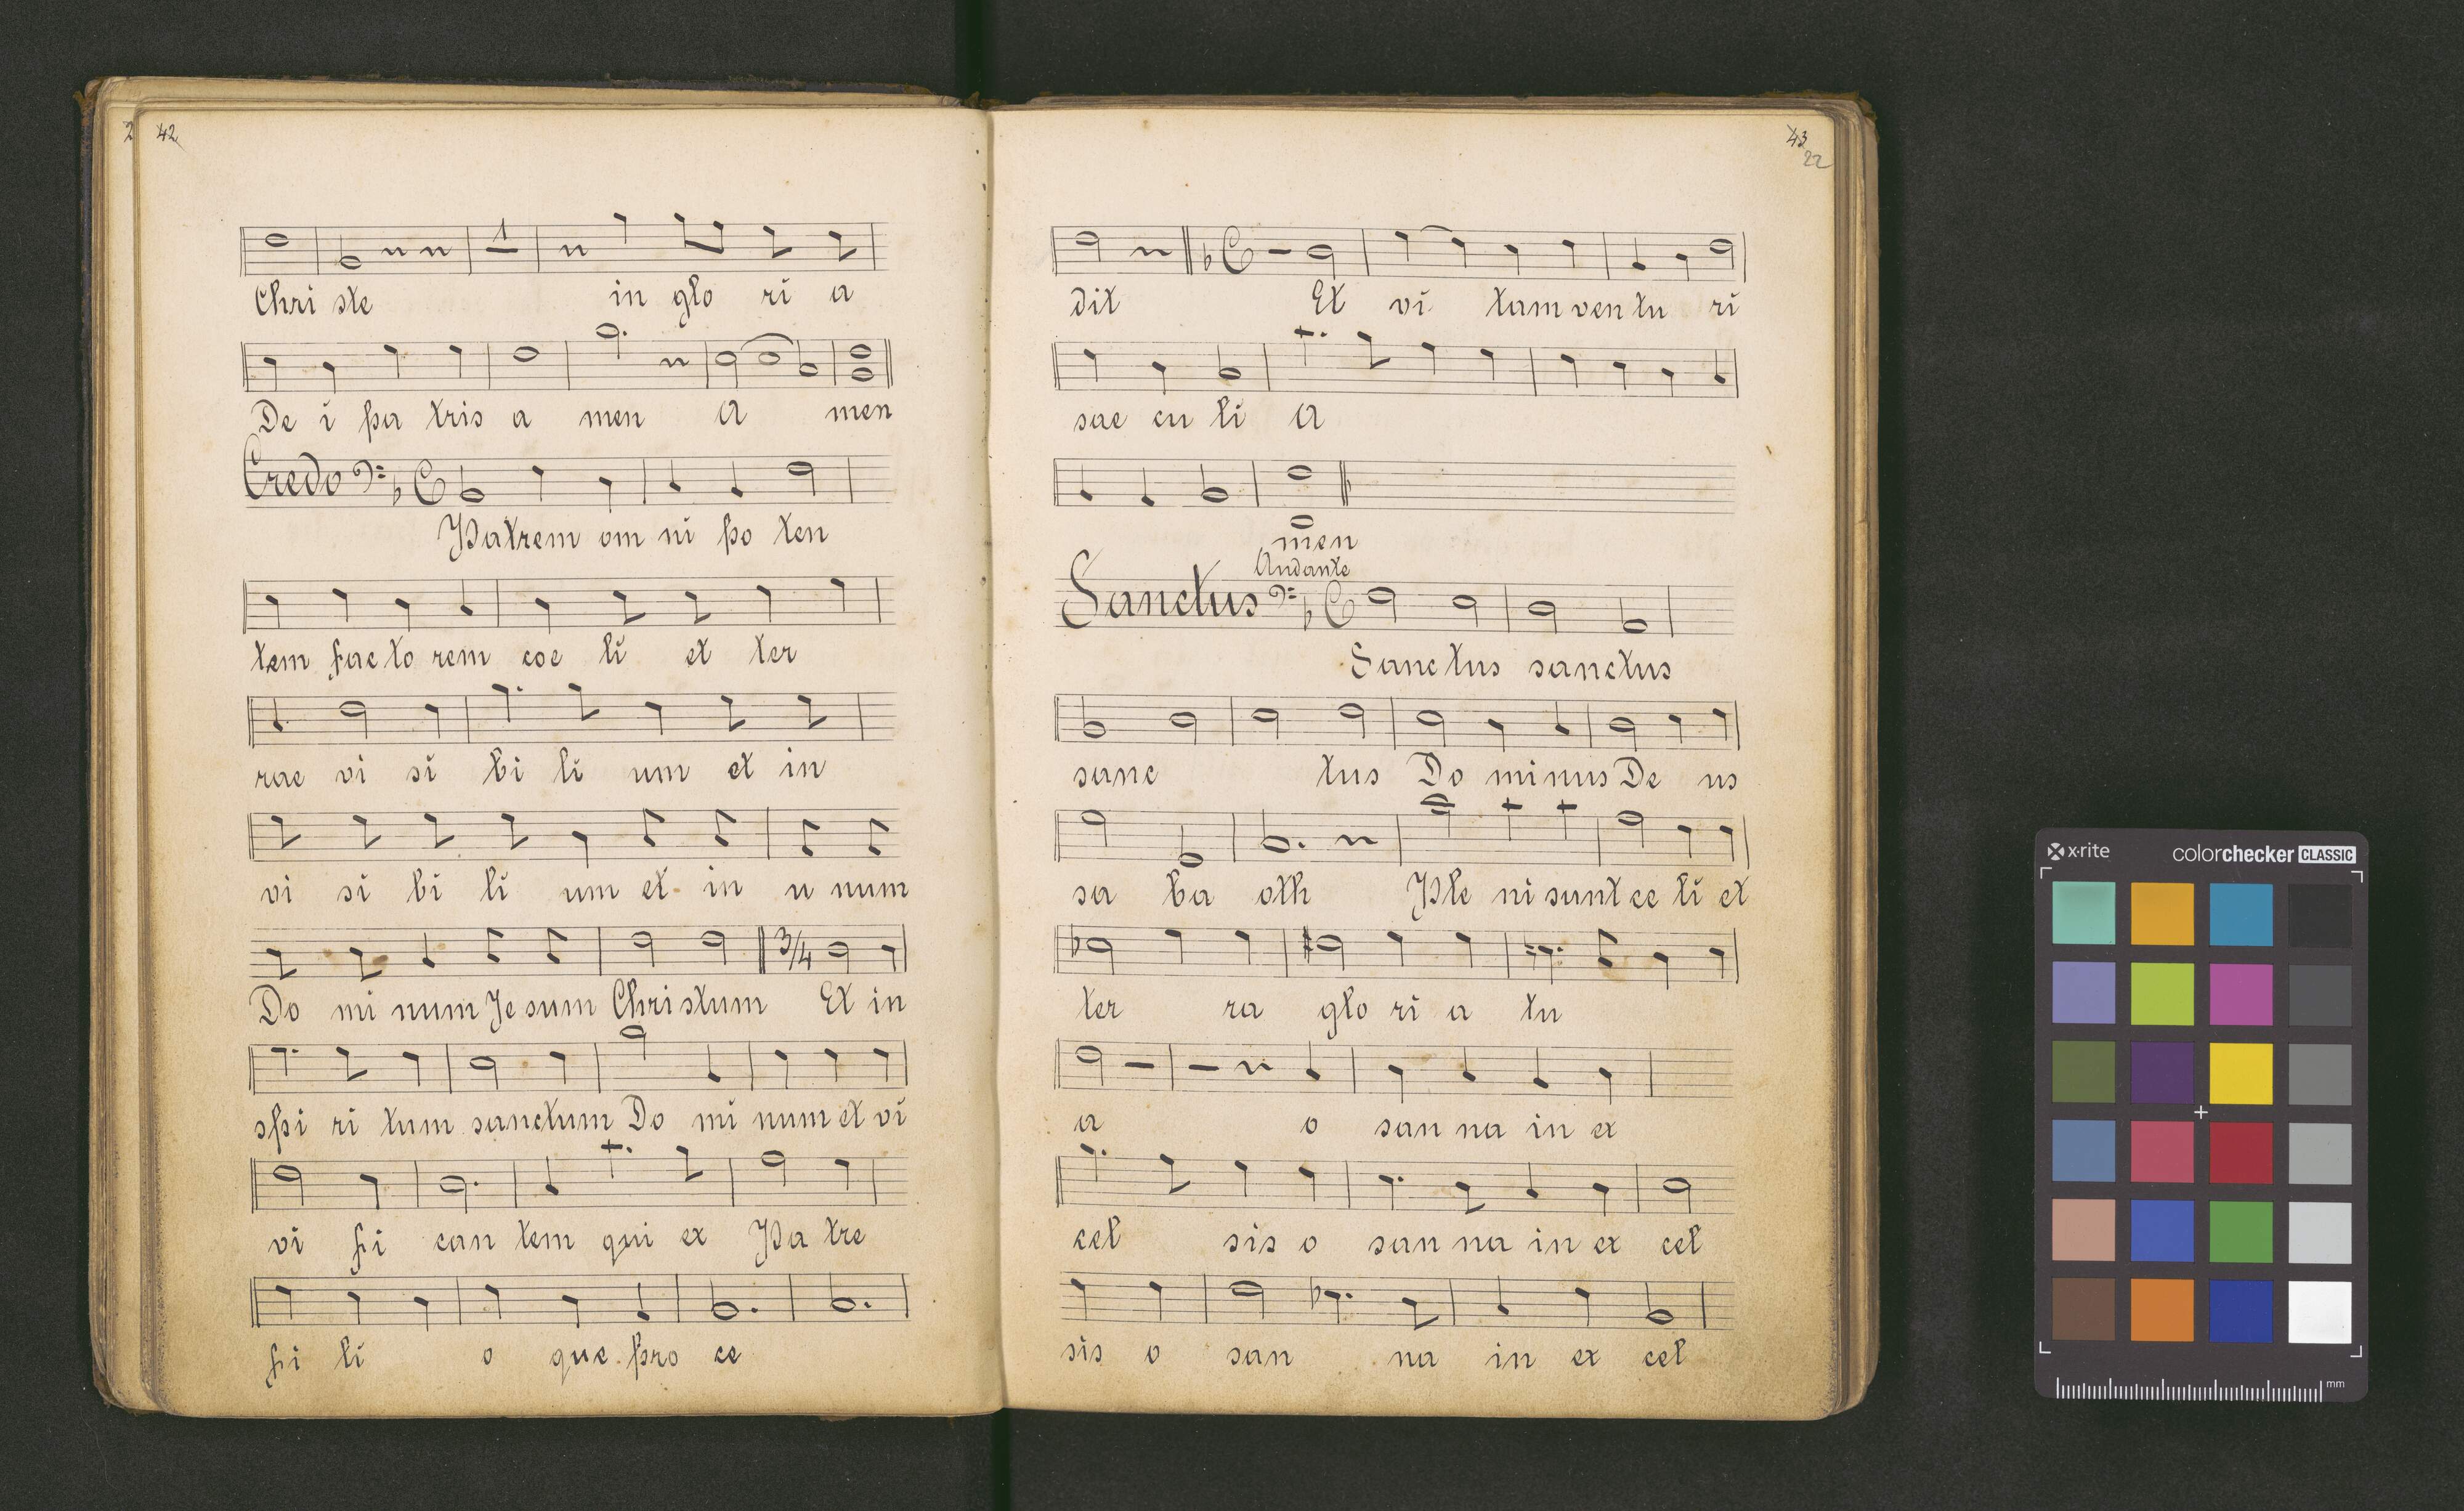 2 42
Chri ste in glo ri a
De i pa tris a men A men
Credo
Patrem om ni po ten
tem fac to rem coe li et ter
rae vi si bi li um et in
vi si bi li um et in u num
Do mi num Je sum Chri stum Et in
3/4
spi ri tum sanctum Do mi num et vi
vi fi can tem qui ex Pa tre
fi li o que pro ce
43
22
dit Et vi tam ven tu ri
sae cu li A
men
Andante
Sanctus
Sanctus sanctus
sanc tus Do minus De us
sa ba oth Ple ni sunt ce li et
ter ra glo ri a tu
a o san na in ex
cel sis o san na in ex cel
sis o san na in ex cel
x-rite colorchecker CLASSIC
mm